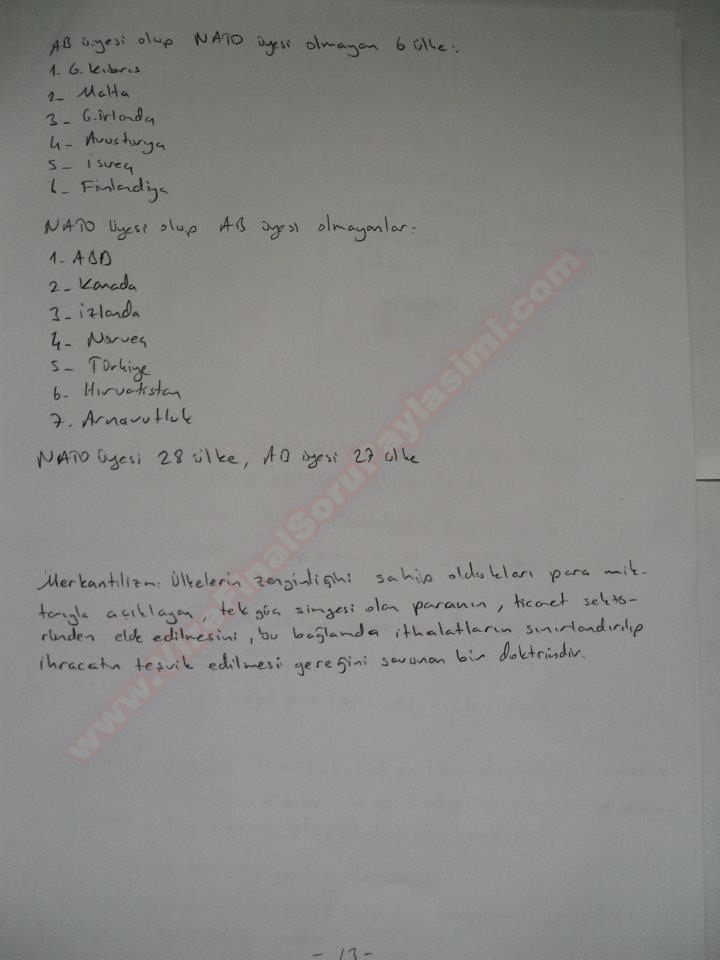 AB üyesi olup NATO üyesi olmayan 6 ülke:
1. G. Kıbrıs
2- Malta
3- G. İrlanda
4- Avusturya
5- İsveç
6- Finlandiya
NATO üyesi olup AB üyesi olmayanlar:
1. ABD
2- Kanada
3- İzlanda
4- Norveç
5- Türkiye
6- Hırvatistan
7. Arnavutluk
NATO üyesi 28 ülke, AB üyesi 27 ülke
Merkantilizm: Ülkelerin zenginliğini sahip oldukları para mik-
tarıyla açıklayan, tek güç simgesi olan paranın, ticaret sektö-
ründen elde edilmesini, bu bağlamda ithalatların sınırlandırılıp
ihracatın teşvik edilmesi gereğini savunan bir doktrindir.
www.VizeFinalSoruPaylasimi.com
- 13 -